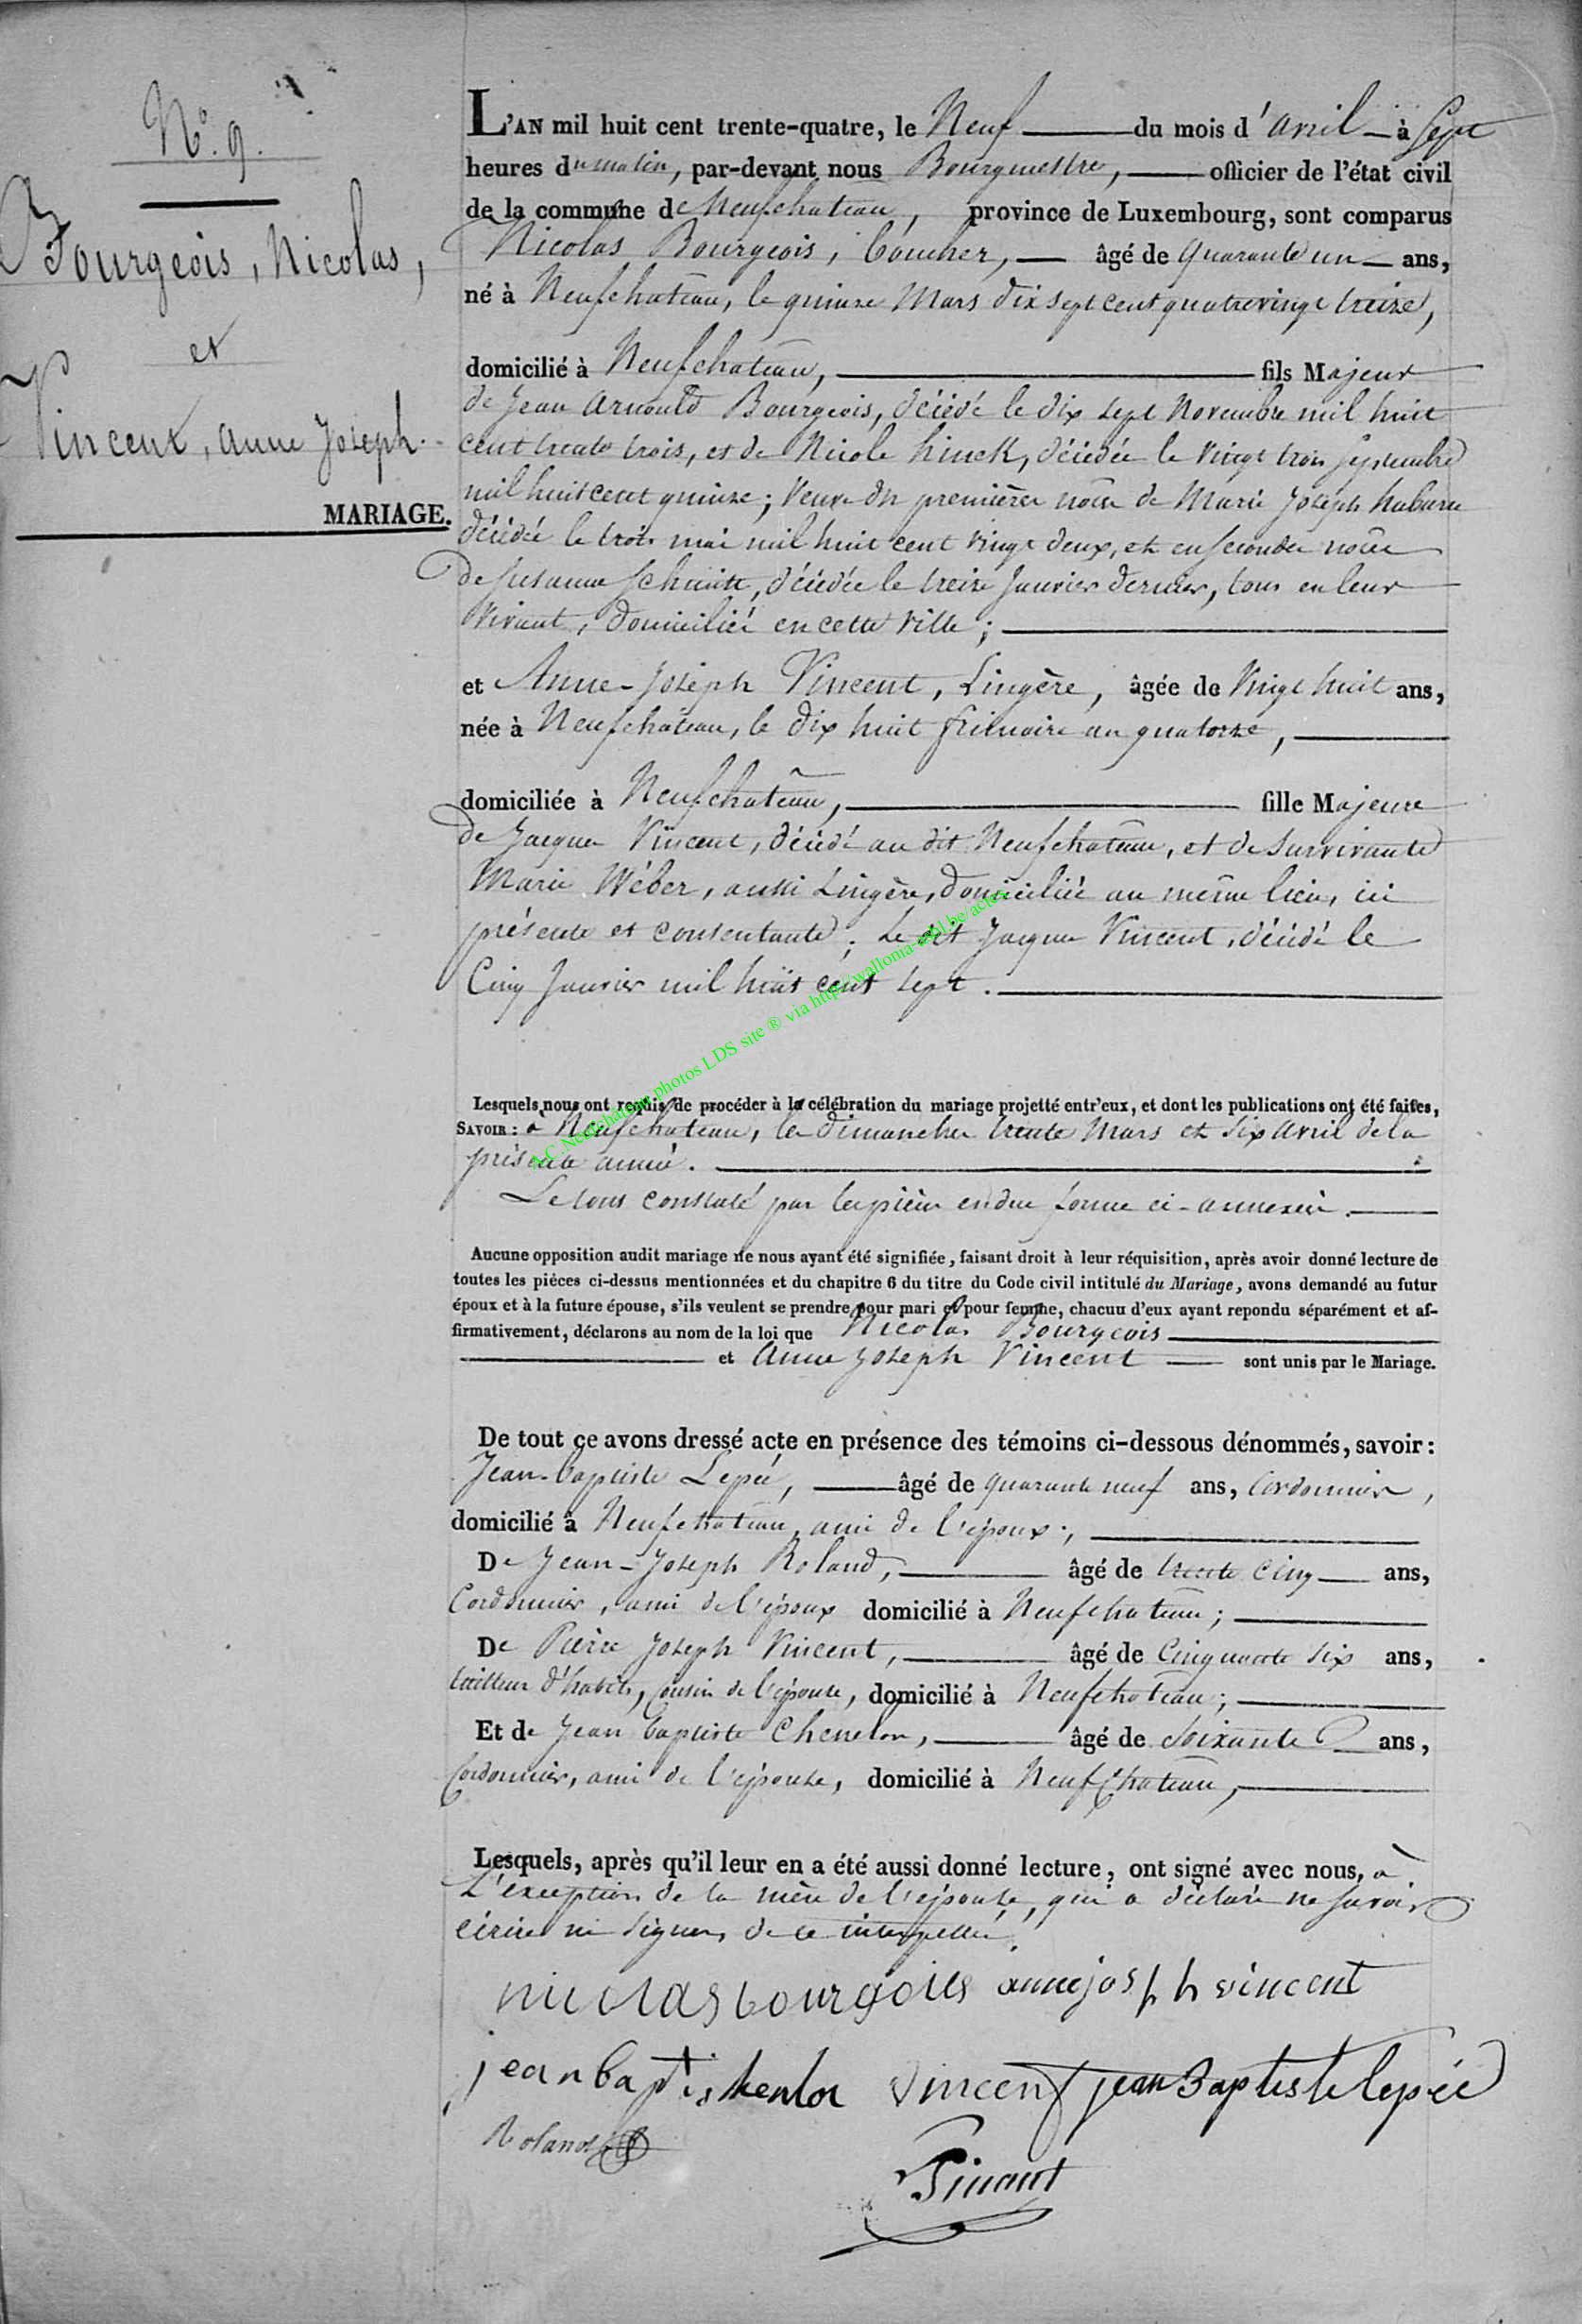 N.° 9.
Bourgeois, Nicolas,
et
Vincent, Anne Joseph.
MARIAGE.
L'AN mil huit cent trente-quatre, le Neuf du mois d'avril à Sept
heures du matin, par-devant nous Bourgmestre, officier de l'état civil
de la commune de Neufchateau, province de Luxembourg, sont comparus
Nicolas Bourgeois, boucher, âgé de quarante un ans,
né à Neufchateau, le quinze Mars dix sept cent quatrevingt treize,
domicilié à Neufchateau, fils Majeur
de Jean Arnould Bourgeois, décédé le dix sept Novembre mil huit
cent trente trois, et de Nicole hinck, décédée le vingt trois septembre
mil huit cent quinze; Veuf en premières nôces de Marie Joseph
décédée le trois mai mil huit cent vingt deux, et en secondes nôces
de Susanne décédée le treize Janvier dernier, tous en leur
vivant, domiciliés en cette ville;
et Anne-Joseph Vincent, Lingère, âgée de vingt huit ans,
née à Neufchâteau, le dix huit frimaire an quatorze,
domiciliée à Neufchateau, fille Majeure
de Jacques Vincent, décédé au dit Neufchateau, et de survivante
Marie Wéber, aussi Lingère, domiciliée au même lieu, ici
présente et consentante; Le dit Jacques Vincent, décédé le
Cinq Janvier mil huit cent sept.
A.C. Neufchâteau photos LDS site ® via http://wallonia-asbl.be/actes
Lesquels nous ont requis de procéder à la célébration du mariage projetté entr'eux, et dont les publications ont été faites,
SAVOIR : à Neufchateau, les dimanches trente Mars et six avril de la
présente année.
Le tous constaté par les pièces en due forme ci-annexées.
Aucune opposition audit mariage ne nous ayant été signifiée, faisant droit à leur réquisition, après avoir donné lecture de
toutes les pièces ci-dessus mentionnées et du chapitre 6 du titre du Code civil intitulé du Mariage, avons demandé au futur
époux et à la future épouse, s'ils veulent se prendre pour mari et pour femme, chacuu d'eux ayant repondu séparément et af-
firmativement, déclarons au nom de la loi que Nicolas Bourgeois
et Anne Joseph Vincent sont unis par le Mariage.
De tout ce avons dressé acte en présence des témoins ci-dessous dénommés, savoir :
Jean-baptiste Lepée, âgé de quarante neuf ans, Cordonnier,
domicilié à Neufchateau, ami de l'époux;
De Jean-Joseph Roland, âgé de trente cinq ans,
Cordonnier, ami de l'époux domicilié à Neufchateau;
De Pierre Joseph Vincent, âgé de Cinquante six ans,
tailleur d'habits, cousin de l'épouse, domicilié à Neufchateau;
Et de Jean baptiste Chenelon, âgé de Soixante ans,
Cordonnier, ami de l'épouse, domicilié à Neufchateau,
Lesquels, après qu'il leur en a été aussi donné lecture, ont signé avec nous, à
L'exception de la mère de l'épouse, qui a déclaré ne savoir
écrire ni signer, de ce interpellée.
nicolas bourgoies anne josph vincent
jean baptis vincent jean Baptiste lepée
Roland